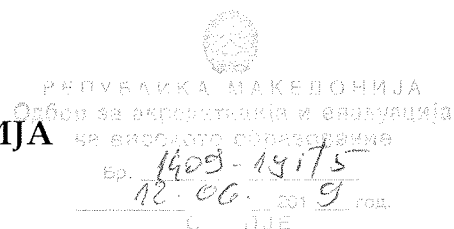 РЕПУБЛИКА МАКЕДОНИЈА
Одбор за акредитација и евалуација
на високото образование
МЈА
Бр.
12.06. 2019 год.